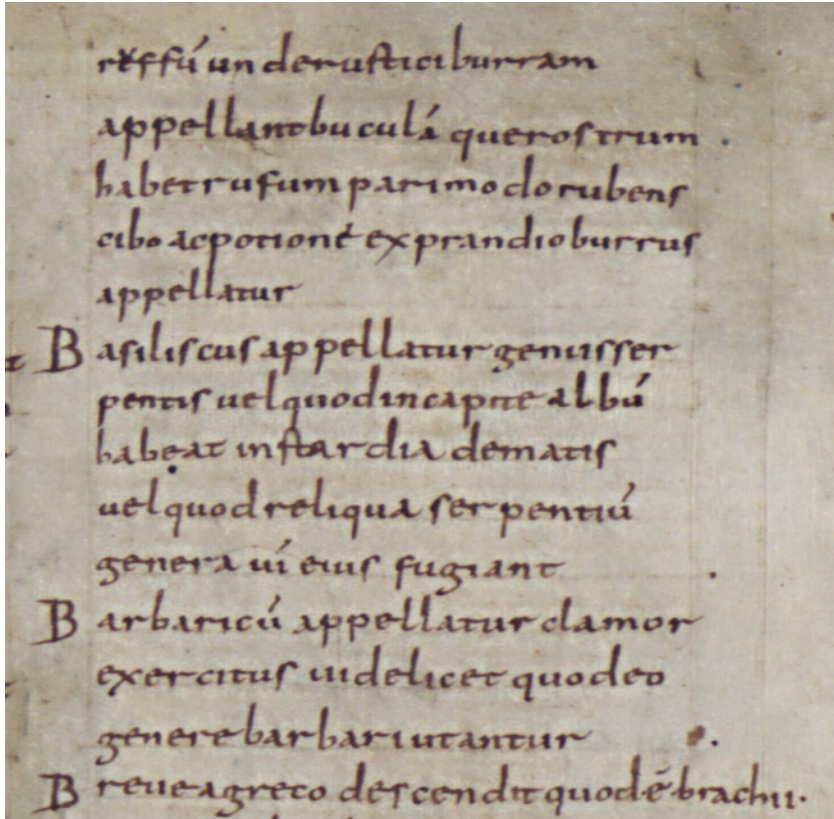 reffū unde rustici burram
appellant buculā que rostrum
habet rufum pari modo rubens
cibo ac potionē ex prandio burrus
appellatur
Basiliscus appellatur genus ser
pentis vel quod in capite albū
habeat instar diadematis
vel quod reliqua serpentiū
genera vī eius fugiant
Barbaricū appellatur clamor
exercitus videlicet quod eo
genere barbari utantur
Breve a greco descendit quod ē brachii.